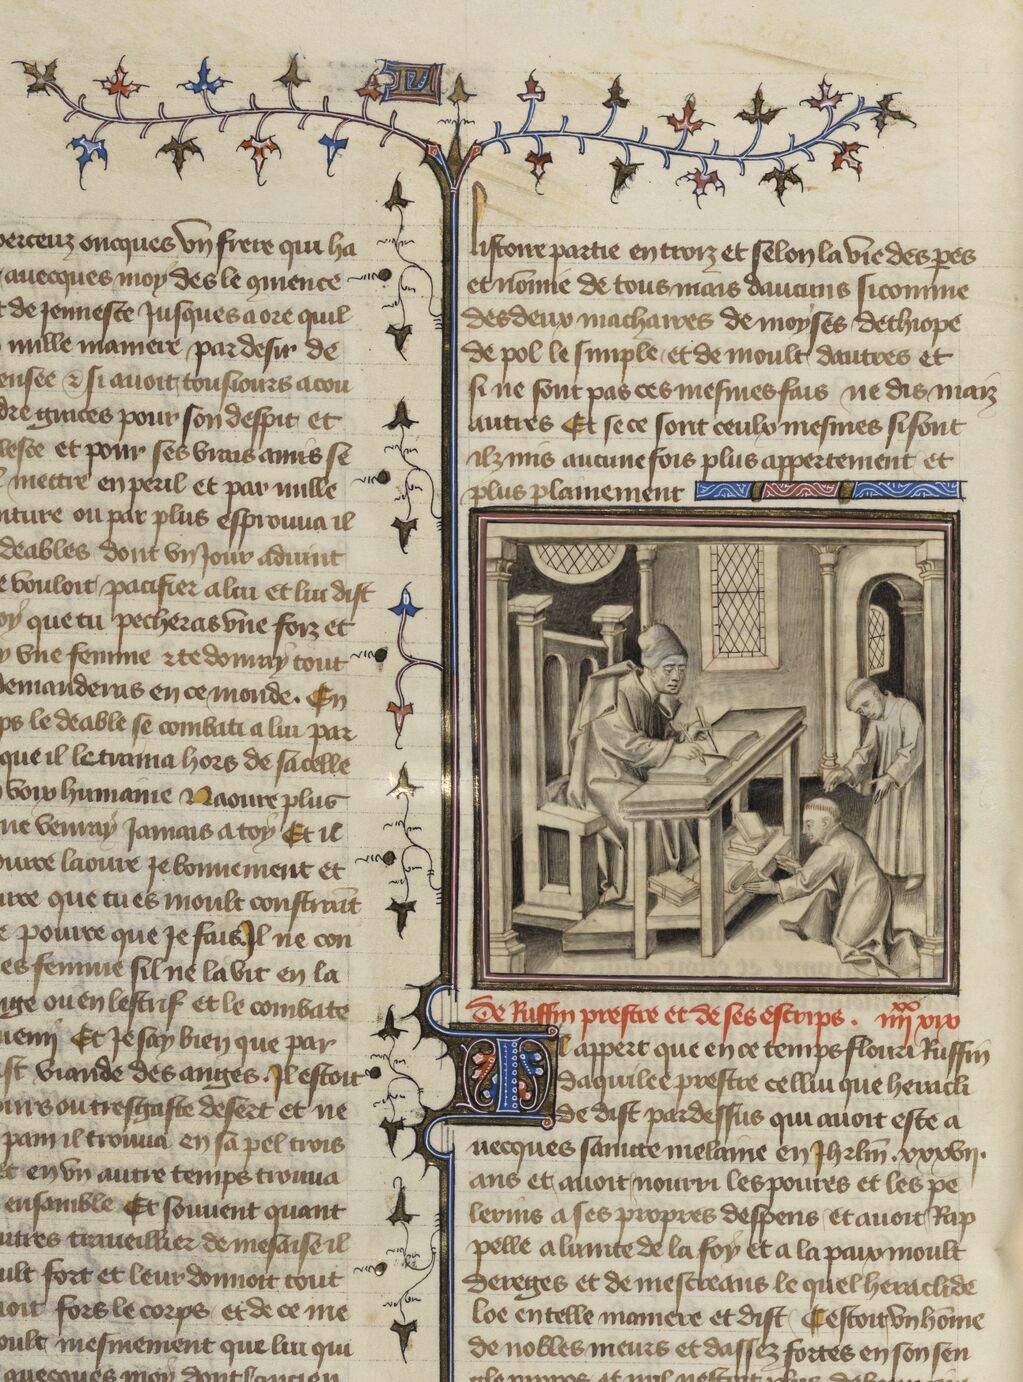 perceuz oncques vn frere qui ha
auecques moy des le 9mence
t de jennesce Jusques a ore quil
mille maniere par desir de
ensee & si auoit tousiours acou
dre graces pour son despit et
leste et pour ses vrais amis se
mettre en peril et par mille
niture ou par plus esprouua il
deables dont vn Jour aduint
e vouloit pacifier a lui et lui dist
oy que tu pecheras vne foiz et
y vne femme & te donray tout
demanderas en ce monde. En
ps le deable se combati a lui par
que il le traina hors de sa celle
voix humaine & aoure plus
ne venray Jamais a toy Et il
ouire laoure Je bonnement et
ure que tu es moult constraint
e pource que Je fais Il ne con
es femme sil ne la vit en la
nge ou en lestrif et le combate
nemi Et Je scay bien que par
st viande des anges. Il estoit
ours ou tresgaste desert et ne
pain il trouua en sa pel trois
et en vn autre temps trouua
ensamble Et souuent quant
utres trauueillier de mesaise il
ult fort et leur donnoit tout
noit fors le corps et de ce me
oult mesmement que lui qui
auecques moy dont lancien
listoire partie en troiz et selon la vie des peres
et nomme de tous mais daucuns sicomme
des deux machaires de moyses dethiope
de pol le simple et de moult dautres et
si ne sont pas ces mesmes fais ne dis maiz
autres Et se ce sont ceulx mesmes si sont
ilz mis aucune fois plus appertement et
plus plainement
De Ruffin prestre et de ses escrips. iiii xx xix
Il appert que en ce temps flouri Ruffin
daquilee prestre cellui que heracli
de dist par dessus qui auoit este a
uecques saincte melaine en Jhrlm .xxxvii.
ans et auoit nourri les poures et les pe
lerins a ses propres despens et auoit Rap
pelle a lunite de la foy et a la paix moult
dereges et de mescreans le quel heraclide
loe en telle maniere et dist Cestoit vn home
de nobles meurs et dassez fortes en son sen